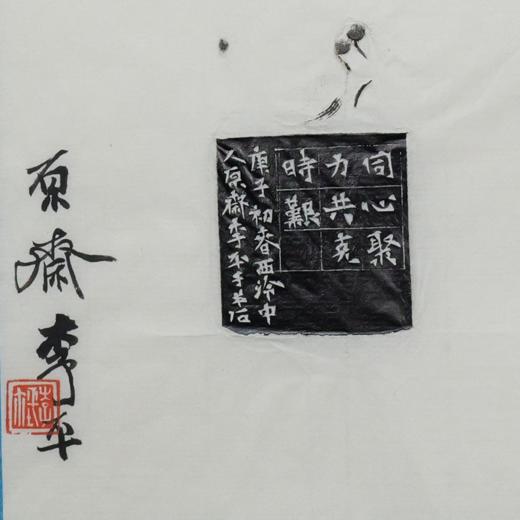 同心聚
力共克
時艱
庚子初春西泠中
人原齋李平手篆石
原齋李平